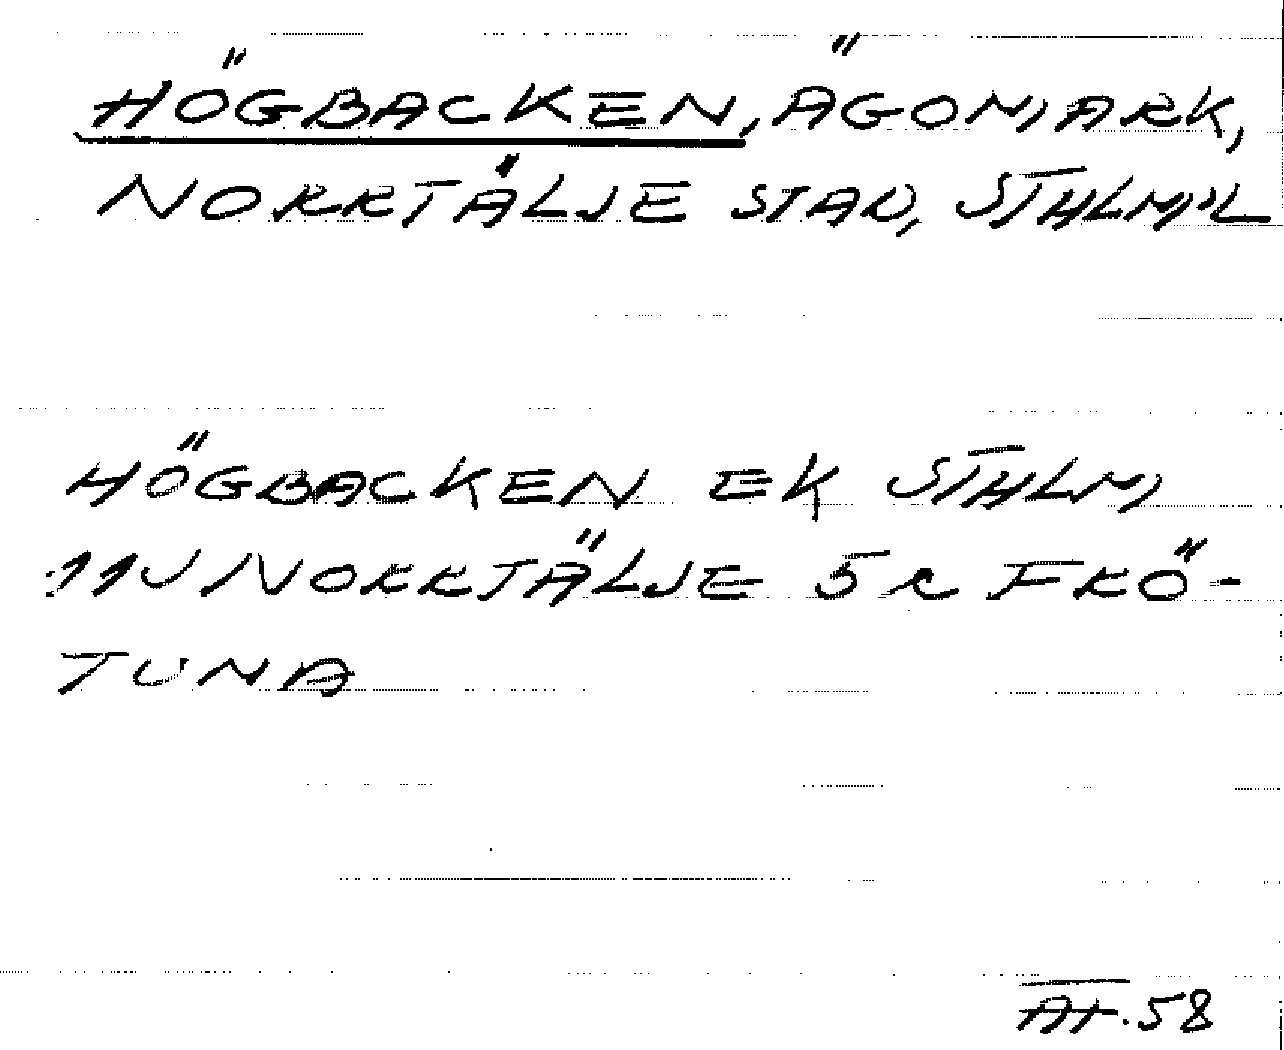 HÖGBACKEN, ÄGOMARK,
NORRTÄLJE STAD, STHLM:L
HÖGBACKEN EK STHLM
11J NORRTÄLJE 5 c FRÖ-
TUNA
AT. 58